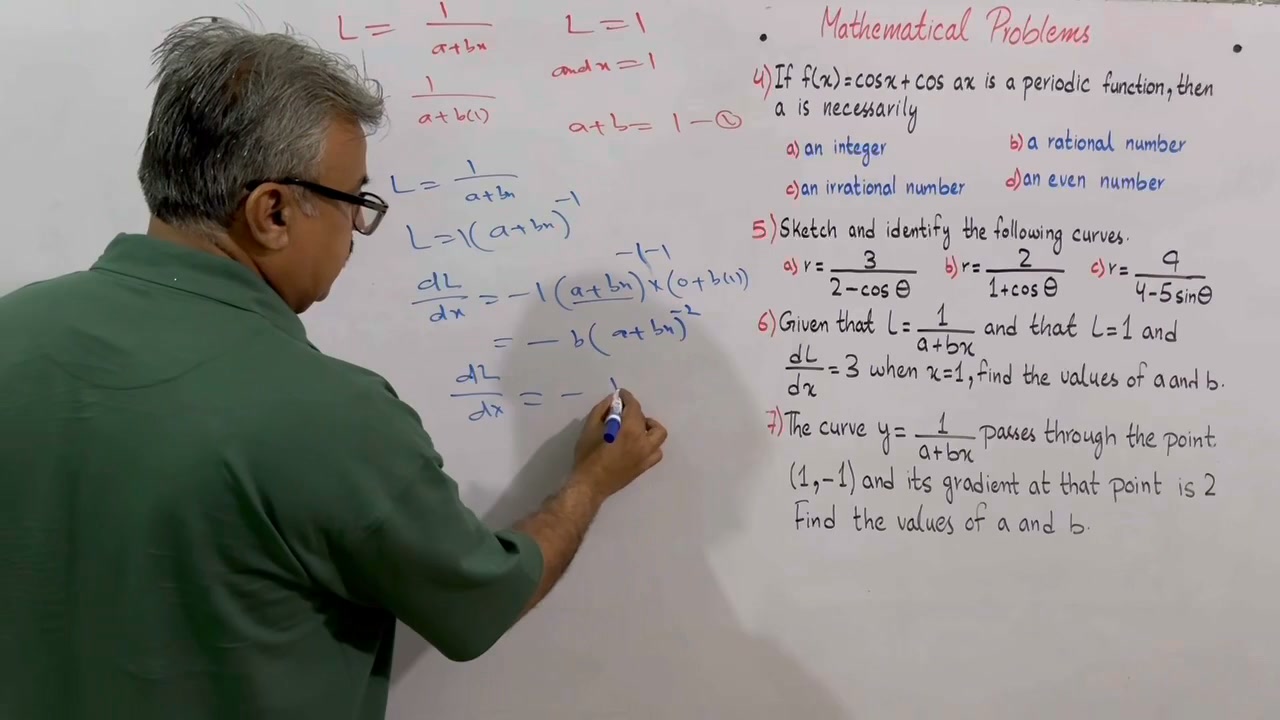 L = 1/(a+bx)
L = 1
and x = 1
1/(a+b(1))
a+b = 1 — ①
L = 1/(a+bx)
L = 1(a+bx)^-1
dL/dx = -1(a+bx)^-1-1 × (0+b(1))
= - b(a+bx)^-2
dL/dx = -
Mathematical Problems
4) If f(x)=cosx+cos ax is a periodic function, then
a is necessarily
a) an integer b) a rational number
c) an irrational number d) an even number
5) Sketch and identify the following curves.
a) r = 3/(2-cos θ) b) r = 2/(1+cos θ) c) r = 9/(4-5sinθ)
6) Given that L = 1/(a+bx) and that L=1 and
dL/dx = 3 when x=1, find the values of a and b.
7) The curve y = 1/(a+bx) passes through the point
(1,-1) and its gradient at that point is 2
Find the values of a and b.